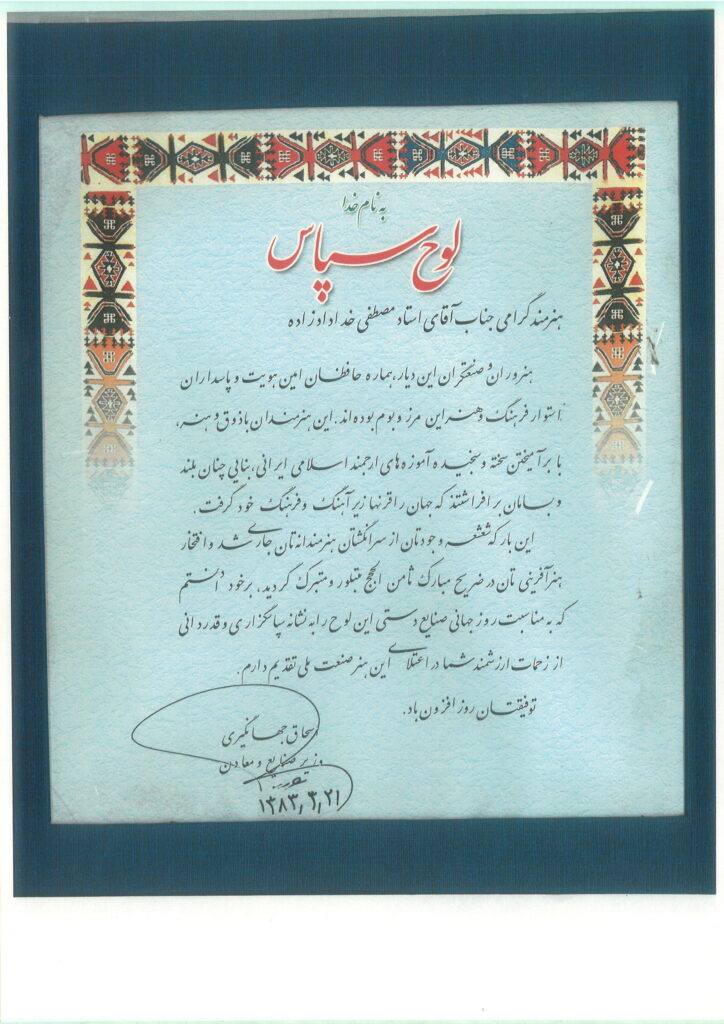 به نام خدا
لوح سپاس
هنرمند گرامی جناب آقای استاد مصطفی خدادادزاده
هنروران و صنعتگران این دیار، هماره حافظان امین هویت و پاسداران
استوار فرهنگ و هنر این مرز و بوم بوده اند. این هنرمندان با ذوق و هنر،
با برآمیختن سخته و سنجیده آموزه های ارجمند اسلامی ایرانی، بنایی چنان بلند
و بسامان برافراشتند که جهان را قرنها زیر آهنگ و فرهنگ خود گرفت.
این بار که شعشعه وجودتان از سرانگشتان هنرمندانه تان جاری شد و افتخار
هنرآفرینی تان در ضریح مبارک ثامن الحجج متبلور و متبرک گردید، بر خود دانستم
که به مناسبت روز جهانی صنایع دستی این لوح را به نشانه سپاسگزاری و قدردانی
از زحمات ارزشمند شما در اعتلای این هنر صنعت ملی تقدیم دارم.
توفیقتان روز افزون باد.
اسحاق جهانگیری
وزیر صنایع و معادن
۱۳۸۳,۳,۲۱